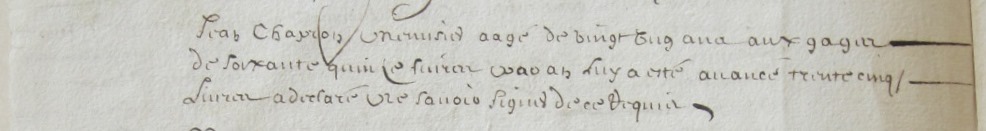 Jean Charron menuisier aagé de vingt cinq ans aux gages
de soixante quinze livres par an luy a esté avancé trente cinq
livres a declaré ne savoir signer de ce requis